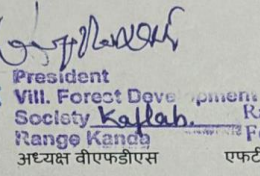 President
Vill. Forest Development
Society Kaflah. Ra
Range Kanda Fo
अध्यक्ष वीएफडीएस एफटी